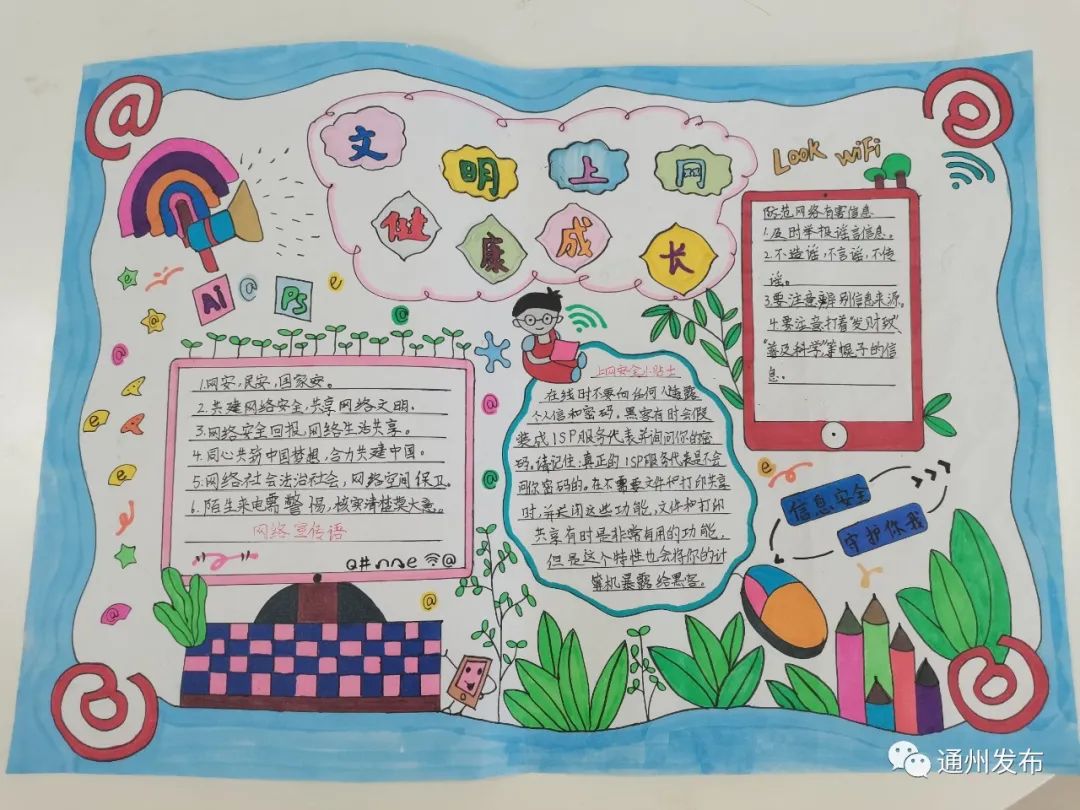 文明上网
健康成长
Look wiFi
Ai @ Ps
防范网络有害信息
1.及时举报谣言信息。
2.不造谣,不言谣,不传
谣。
3.要注意辨别信息来源。
4.要注意打着"发财致"
"普及科学"等幌子的信
息。
1.网安,民安,国家安。
2.共建网络安全,共享网络文明。
3.网络安全回报,网络生活共享。
4.同心共筑中国梦想,合力共建中国。
5.网络社会法治社会,网络空间保卫。
6.陌生来电需警惕,核实清楚莫大意。
网络宣传语
上网安全小贴士
在线时不要向任何人透露
个人信和密码。黑客有时会假
装成ISP服务代表并询问你的密
码。请记住:真正的ISP服务代表是不会
问你密码的。在不需要文件和打印共享
时,并关闭这些功能,文件和打印
共享有时是非常有用的功能,
但是这个特性也会将你的计
算机暴露给黑客。
信息安全
守护你我
通州发布